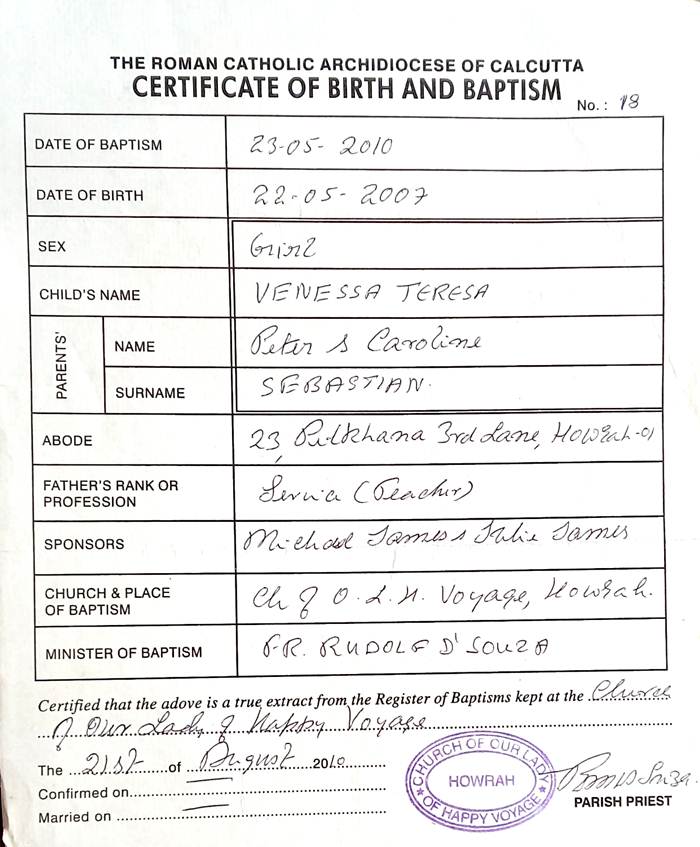 THE ROMAN CATHOLIC ARCHIDIOCESE OF CALCUTTA
CERTIFICATE OF BIRTH AND BAPTISM
No. : 18
DATE OF BAPTISM 23-05-2010
DATE OF BIRTH 22-05-2007
SEX Girl
CHILD'S NAME VENESSA TERESA
PARENTS'
NAME Peter & Caroline
SURNAME SEBASTIAN.
ABODE 23, Pilkhana 3rd Lane, Howrah-01
FATHER'S RANK OR PROFESSION Service (Teacher)
SPONSORS Michael James & Julie James
CHURCH & PLACE OF BAPTISM Ch of O.L.H. Voyage, Howrah.
MINISTER OF BAPTISM FR. RUDOLF D'SOUZA
Certified that the adove is a true extract from the Register of Baptisms kept at the Church
of Our Lady of Happy Voyage
The 21st of August 2010
Confirmed on
Married on
CHURCH OF OUR LADY
HOWRAH
OF HAPPY VOYAGE
PARISH PRIEST